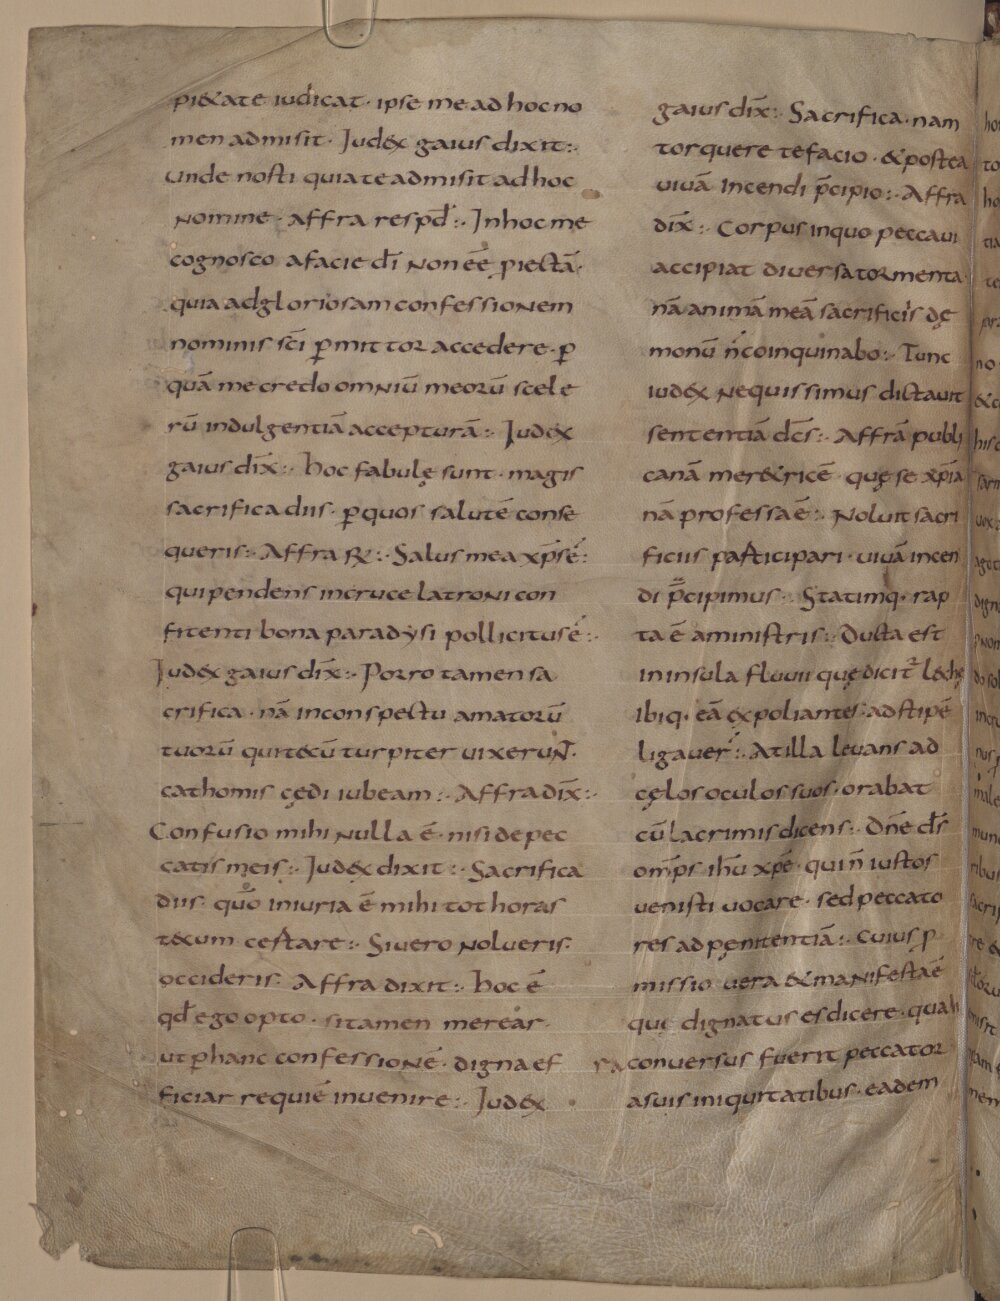 pi&ate iudicat· ipse me ad hoc no
men admisit· Iudex gaius dixit:·
unde nosti quia te admisit ad hoc
nomine· Affra respđ:· In hoc me
cognosco a facie dī non eē piectā·
quia ad gloriosam confessionem
nominis sc̄i ꝑmittor accedere· ꝑ
quā me credo omniū meorū scele
rū indulgentiā accepturā:· Iudex
gaius dix̄:· hoc fabulę sunt· magis
sacrifica diis· ꝑ quos salutē conse
queris:· Affra ꝶ:· Salus mea xp̄s ē:
qui pendens in cruce latroni con
fitenti bona paradysi pollicitus ē:·
Iudex gaius dix̄:· Porro tamen sa
crifica· nā in conspectu amatorū
tuorū qui tecū turpiter uixerunt·
cathomis cędi iubeam:· Affra dix̄:·
Confusio mihi nulla ē· nisi de pec
catis meis:· Iudex dixit:· Sacrifica
diis· quō iniuria ē mihi tot horas
tecum certare:· Si uero nolueris·
occideris· Affra dixit:· hoc ē
qđ ego opto· si tamen merear·
ut ꝑ hanc confessionē· digna ef
ficiar requiē inuenire:· Iudex
gaius dix̄:· Sacrifica· nam
torquere te facio· & postea
uiuā incendi p̄cipio:· Affra
dix̄:· Corpus in quo peccaui
accipiat diuersa tormenta
nā animā meā sacrificiis dę
monū n̄ coinquinabo:· Tunc
iudex nequissimus dictauit
sententiā dc̄s:· Affrā publi
canā mer&ricē· quę se xp̄ia
nā professa ē:· Noluit sacri
ficiis participari· uiuā incen
di p̄cipimus:· Statimq· rap
ta ē a ministris:· Ducta est
in insula fluuii quę dicit̄ lechę
Ibiq· eā expoliantes· ad stipē
ligauer̄:· At illa leuans ad
cęlos oculos suos· orabat
cū lacrimis dicens:· Dn̄e ds̄
omp̄s ihū xpē· qui n̄ iustos
uenisti uocare· sed peccato
res ad penitentiā:· Cuius ꝓ
missio uera & manifesta ē
que dignatus es dicere· quali
ra conuersus fuerit peccator
a suis iniquitatibus· eadem